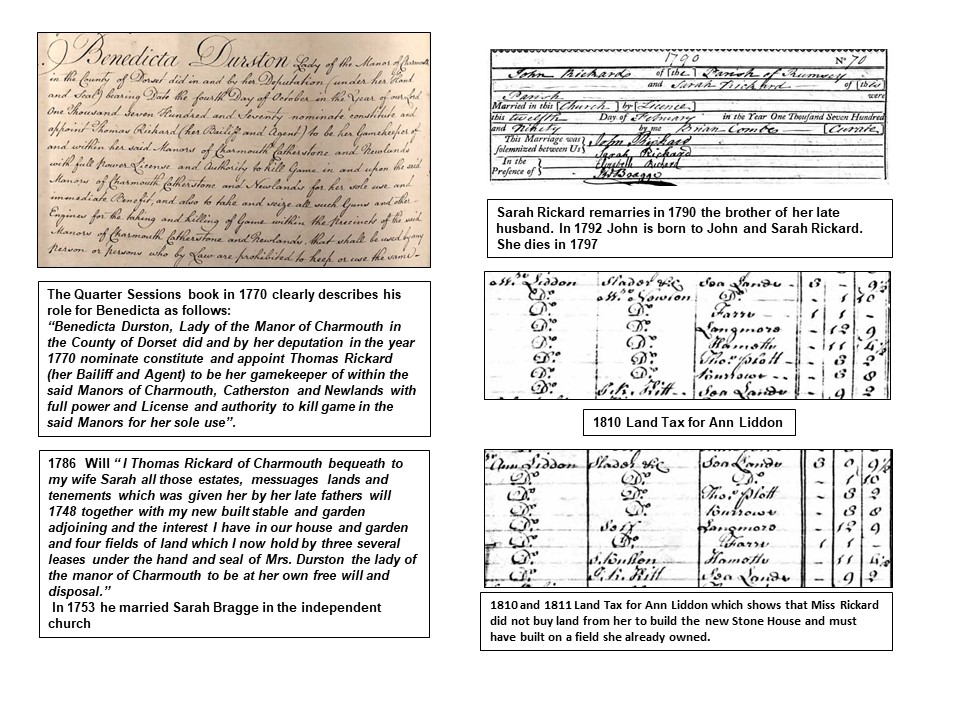 Benedicta Durston Lady of the Manor of Charmouth
in the County of Dorset did in and by her Deputation (under her Hand
and Seal) bearing Date the fourth Day of October in the Year of our Lord
One Thousand Seven Hundred and Seventy nominate constitute and
appoint Thomas Rickard (her Bailiff and Agent) to be her Gamekeeper of
and within her said Manors of Charmouth Catherstone and Newlands
with full Power License and Authority to kill Game in and upon the said
Manors of Charmouth Catherstone and Newlands for her sole use and
immediate Benefit, and also to take and seize all such Guns and other
Engines for the taking and killing of Game within the Precincts of the said
Manors of Charmouth Catherstone and Newlands, that shall be used by any
Person or Persons who by Law are prohibited to keep or use the same-
The Quarter Sessions book in 1770 clearly describes his
role for Benedicta as follows:
“Benedicta Durston, Lady of the Manor of Charmouth in
the County of Dorset did and by her deputation in the year
1770 nominate constitute and appoint Thomas Rickard
(her Bailiff and Agent) to be her gamekeeper of within the
said Manors of Charmouth, Catherston and Newlands with
full power and License and authority to kill game in the
said Manors for her sole use”.
1786 Will “I Thomas Rickard of Charmouth bequeath to
my wife Sarah all those estates, messuages lands and
tenements which was given her by her late fathers will
1748 together with my new built stable and garden
adjoining and the interest I have in our house and garden
and four fields of land which I now hold by three several
leases under the hand and seal of Mrs. Durston the lady of
the manor of Charmouth to be at her own free will and
disposal.”
In 1753 he married Sarah Bragge in the independent
church
1790 No 70
John Rickards of [the] Parish of Rumsey
and Sarah Rickard of [this]
Parish were
Married in this [Church] by [Licence]
this twelfth Day of February in the Year One Thousand Seven Hundred
and Ninety by me Brian Combe [Curate]
This Marriage was solemnized between Us } John Rickard
Sarah Rickard
In the Presence of } Elizabeth Rickard
Bragge
Sarah Rickard remarries in 1790 the brother of her late
husband. In 1792 John is born to John and Sarah Rickard.
She dies in 1797
Liddon Slador &c Sea Lands 3 - 9½
Do Do - 1 10
Do Do Farre 1 1 -
Do Do Langmore - 12 9
Do Do Hamotts - 11 4½
Do Do Thos Plott - 3 2
Do Do Burrows - 3 8
Do Sea Lands - 9 2
1810 Land Tax for Ann Liddon
Ann Liddon Slador &c Sea Lands 3 0 9½
Do Do Do - 1 10
Do Do Thos Plott - 3 2
Do Do Burrows - 3 8
Do Self Langmore - 12 9
Do Do Farre 1 1 -
Do Hamotts - 11 4½
Do Sea Lands - 9 2
1810 and 1811 Land Tax for Ann Liddon which shows that Miss Rickard
did not buy land from her to build the new Stone House and must
have built on a field she already owned.